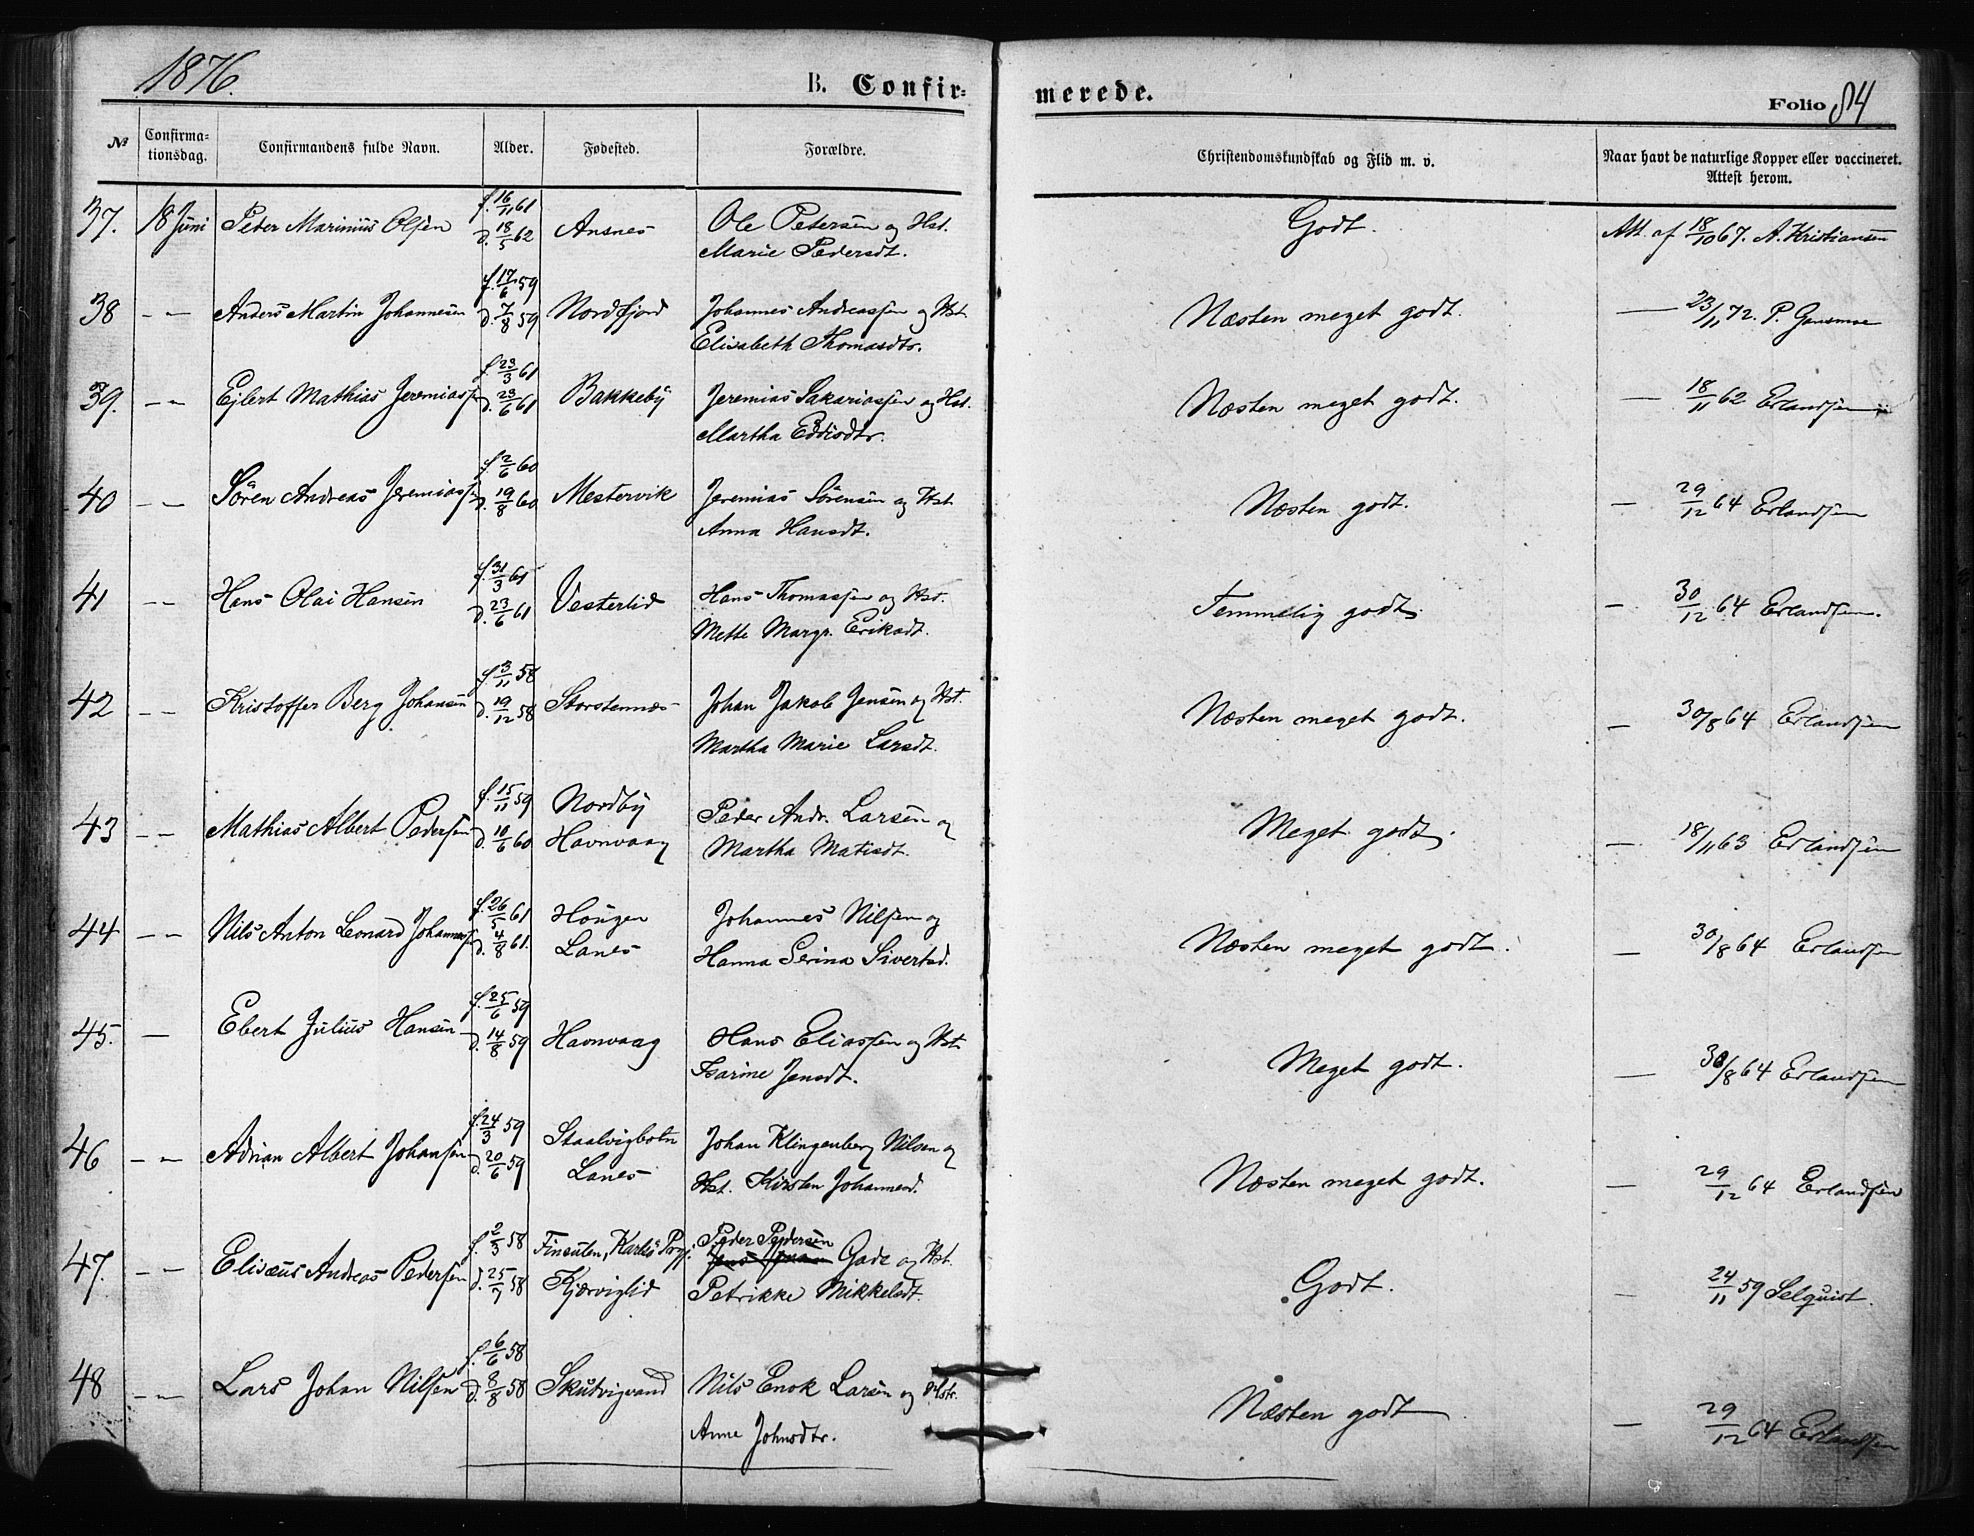 1876.
B. Confir-
merede.
Folio 84
№
Confirma-
tionsdag.
Confirmandens fulde Navn.
Alder.
Fødested.
Forældre.
Christendomskundskab og Flid m. v.
Naar havt de naturlige Kopper eller vaccineret.
Attest herom.
37. 18 Juni Peter Marinius Olsen f. 16/11 61 d. 18/5 62 Ansnes Ole Petersen og Hst. Godt. Att. af 18/10 67. A. Kristiansen
Marie Pedersdt.
38 - - Anders Martin Johannesen f. 17/6 59 d. 7/8 59 Nordfjord Johannes Andreassen og Hst. Næsten meget godt. — 23/11 72. P. Gansmoe
Elisabeth Thomasdtr.
39. - - Ejlert Mathias Jeremiassen f. 23/3 61 d. 23/6 61 Bakkeby Jeremias Sakariassen og Hst. Næsten meget godt. — 18/11 62 Erlandsen
Martha Eddisdtr.
40 - - Sören Andreas Jeremiassen f. 2/6 60 d. 19/8 60 Mestervik Jeremias Sörensen og Hst. Næsten godt. — 29/12 64 Erlandsen
Anna Hansdt.
41 - - Hans Olai Hansen f. 31/3 61 d. 23/6 61 Vesterlid Hans Thomassen og Hst. Temmelig godt. — 30/12 64 Erlandsen.
Mette Margr. Eriksdt.
42 - - Kristoffer Berg Johansen f. 3/11 58 d. 19/12 58 Storstennæs Johan Jakob Jensen og Hst. Næsten meget godt. — 30/8 64 Erlandsen
Martha Marie Larsdt.
43 - - Mathias Albert Pedersen f. 15/11 59 d. 10/6 60 Nordby Peder Andr. Larsen og Meget godt. — 18/11 63 Erlandsen
Havnvaag Martha Matisdt.
44 - - Nils Anton Leonard Johannessen f. 26/5 61 d. 4/8 61. Hougen Johannes Nilsen og Næsten meget godt. — 30/8 64 Erlandsen
Lanes Hanna Serina Sivertsd.
45. — Ebert Julius Hansen f. 25/6 59 d. 14/8 59 Havnvaag Hans Eliassen og Hst. Meget godt. — 30/8 64 Erlandsen
Isarine Jensdt.
46 - - Adrian Albert Johansen f. 24/3 59 d. 20/6 59 Staalvigbotn Johan Klingenberg Nilsen og Næsten meget godt. — 29/12 64 Erlandsen
Lanes Hst. Kirsten Johannesd.
47. - - Elisæus Andreas Pedersen f. 2/3 58 d. 25/7 58 Finsuten, Karlsö Pgj. Peder Pedersen Gade og Hst. Godt. — 24/11 59 Selquist.
Kjærviglid Petrikke Mikkelsdt.
48 - - Lars Johan Nilsen f. 6/6 58 d. 8/8 58 Skutvigvand Nils Enok Larsen og Hstr. Næsten godt — 29/12 64 Erlandsen
Anne Johnsdtr.